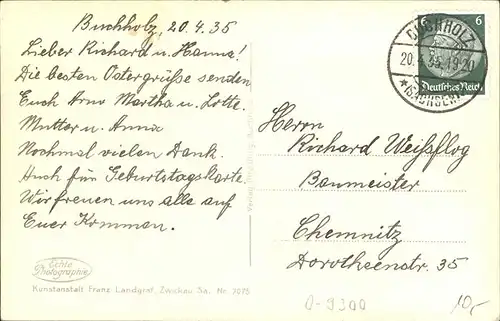 Buchholz, 20.4.35
Lieber Richard u. Hanna!
Die besten Ostergrüße senden
Euch Arno Martha u. Lotte.
Mutter u. Anna
Nochmal vielen Dank.
Auch für Geburtstagskarte.
Wir freuen uns alle auf
Euer Kommen.
Echte
Photographie
Kunstanstalt Franz Landgraf, Zwickau Sa. Nr. 7075
BUCHHOLZ
20.4.35.19-20
*(SACHSEN)
6
Deutsches Reich
Herrn
Richard Weißflog
Baumeister
Chemnitz
Dorotheenstr. 35
0-9300
10,-